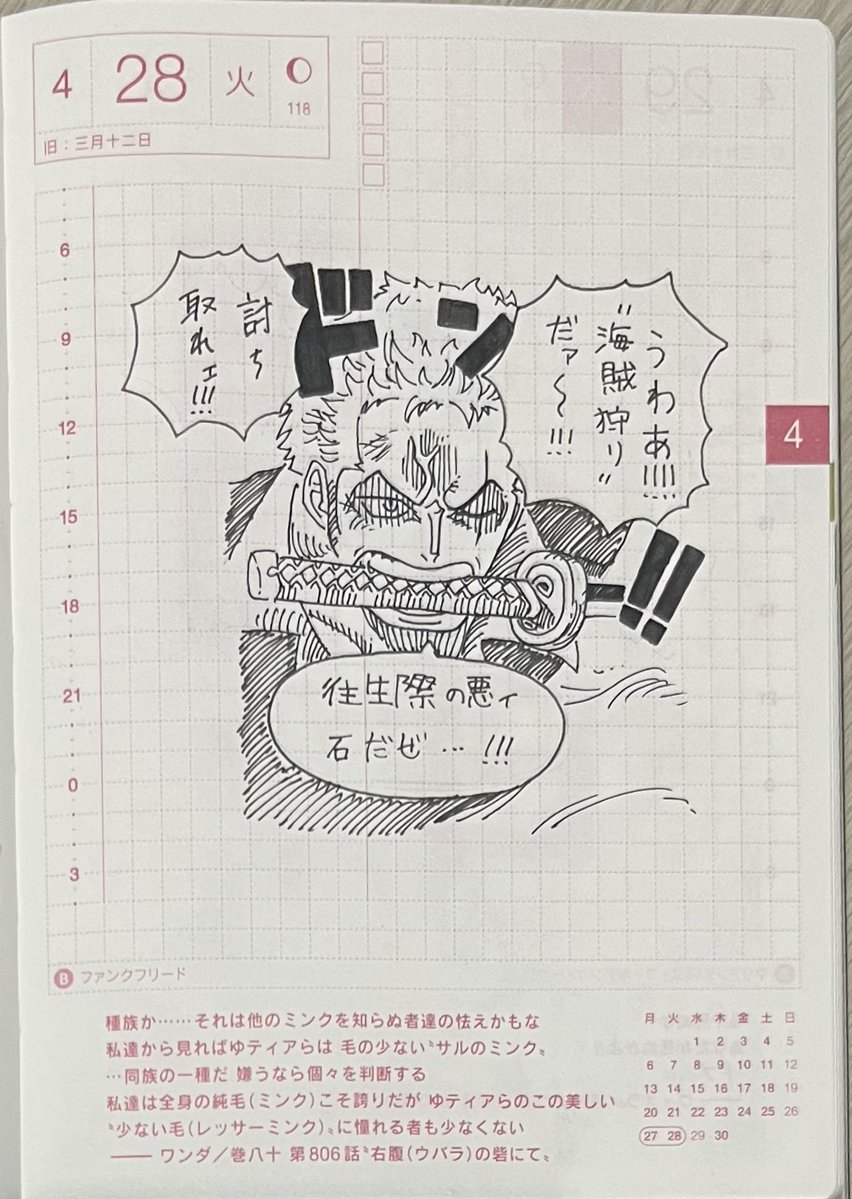 4 28 火
118
旧：三月十二日
うわあ!!!!
"海賊狩り"
だァ〜!!!
討ち
取れェ!!!
往生際の悪ィ
石だぜ…!!!
6
9
12
15
18
21
0
3
4
B ファンクフリード
種族か……それは他のミンクを知らぬ者達の怯えかもな
私達から見ればゆティアらは 毛の少ない〝サルのミンク〟
…同族の一種だ 嫌うなら個々を判断する
私達は全身の純毛（ミンク）こそ誇りだが ゆティアらのこの美しい
〝少ない毛（レッサーミンク）〟に憧れる者も少なくない
―― ワンダ／巻八十 第806話〝右腹（ウバラ）の砦にて〟
月 火 水 木 金 土 日
1 2 3 4 5
6 7 8 9 10 11 12
13 14 15 16 17 18 19
20 21 22 23 24 25 26
27 28 29 30